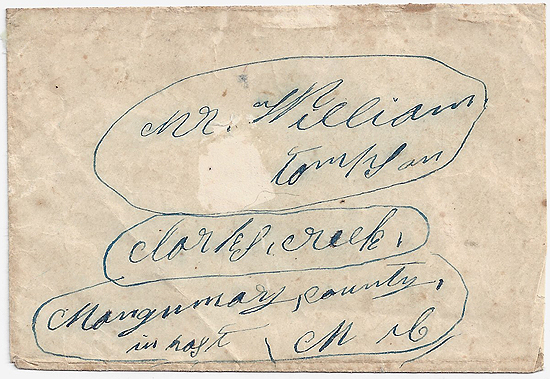 Mr. William
tompson
Clarks, creek,
Mongumary, county,
in hast N C